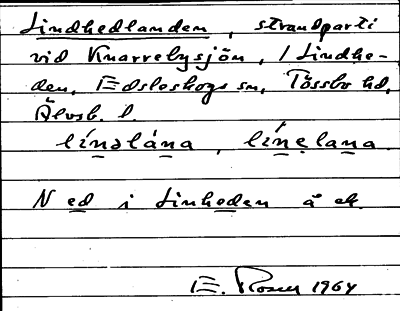 Lindhedlanden, strandparti
vid Knarrebysjön, i Lindhe-
den, Edsleskogs sn, Tössbo hd,
Älvsb. l.
línəlána, línelana
N ed i Linheden å ek.
E. Rosell 1964